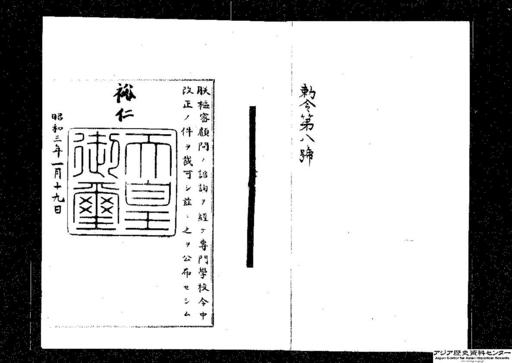 勅令第八號
朕樞密顧問ノ諮詢ヲ經テ專門學校令中
改正ノ件ヲ裁可シ茲ニ之ヲ公布セシム
裕仁
天皇御璽
昭和三年一月十九日
アジア歴史資料センター
Japan Center for Asian Historical Records